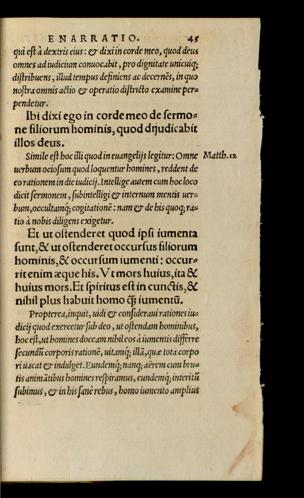 ENARRATIO. 45
qui est à dextris eius: & dixi in corde meo, quod deus
omnes ad iudicium conuocabit, pro dignitate unicuiq;
distribuens, illud tempus definiens ac decernẽs, in quo
nostra omnis actio & operatio districto examine per-
pendetur.
Ibi dixi ego in corde meo de sermo-
ne filiorum hominis, quod dijudicabit
illos deus.
Simile est hoc illi quod in euangelijs legitur: Omne Matth. 12
uerbum ociosum quod loquentur homines, reddent de
eo rationem in die iudicij. Intellige autem cum hoc loco
dicit sermonem, subintelligi & internum mentis uer-
bum, occultamq; cogitationē: nam & de his quoq; ra-
tio à nobis diligens exigetur.
Et ut ostenderet quod ipsi iumenta
sunt, & ut ostenderet occursus filiorum
hominis, & occursum iumenti: occur-
rit enim æque his. Vt mors huius, ita &
huius mors. Et spiritus est in cunctis, &
nihil plus habuit homo q̃; iumentū.
Propterea, inquit, uidi & consideraui rationes iu-
dicij quod exercetur sub deo, ut ostendam hominibus,
hoc est, ut homines doceam nihil eos à iumentis differre
secundū corporis rationē, uitamq; illā, quæ tota corpo
ri uacat & indulget. Eundemq; nanq; aërem cum bru-
tis animātibus homines respiramus, eundemq; interitū
subimus, & in his sanè rebus, homo iumento amplius